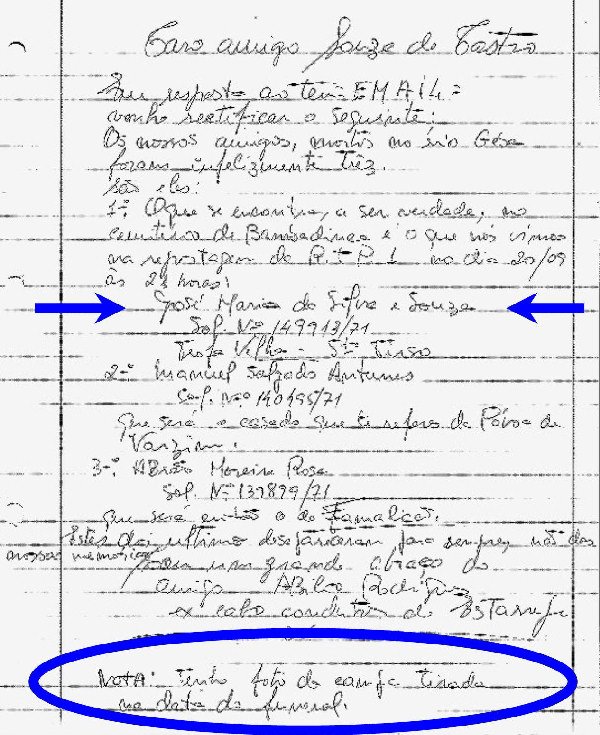 Caro amigo Souza de Castro
Em resposta ao teu EMAIL =
venho rectificar o seguinte:
Os nossos amigos, mortos no rio Geba
foram infelizmente três.
São eles:
1º O que se encontra, a ser verdade, no
cemitério de Bambadinca é o que nós vimos
na reportagem da R.T.P. 1 no dia 20/09
às 21 horas:
José Maria da Silva e Souza
Sol. Nº 149913/71
Trofa Velha - Stº Tirso
2º Manuel Salgado Antunes
Sol. nº 140495/71
que será o casado que te referes da Póvoa de
Varzim.
3º Abrão Moreira Rosa
Sol. Nº 139899/71
que será então o de Famalicão.
Estes dois ultimo desapareceram para sempre, não das
nossas memórias
um grande abraço do
amigo Rodrigues
ex cabo condutor de Estarreja
NOTA: Tenho foto da campa tirada
na data do funeral.